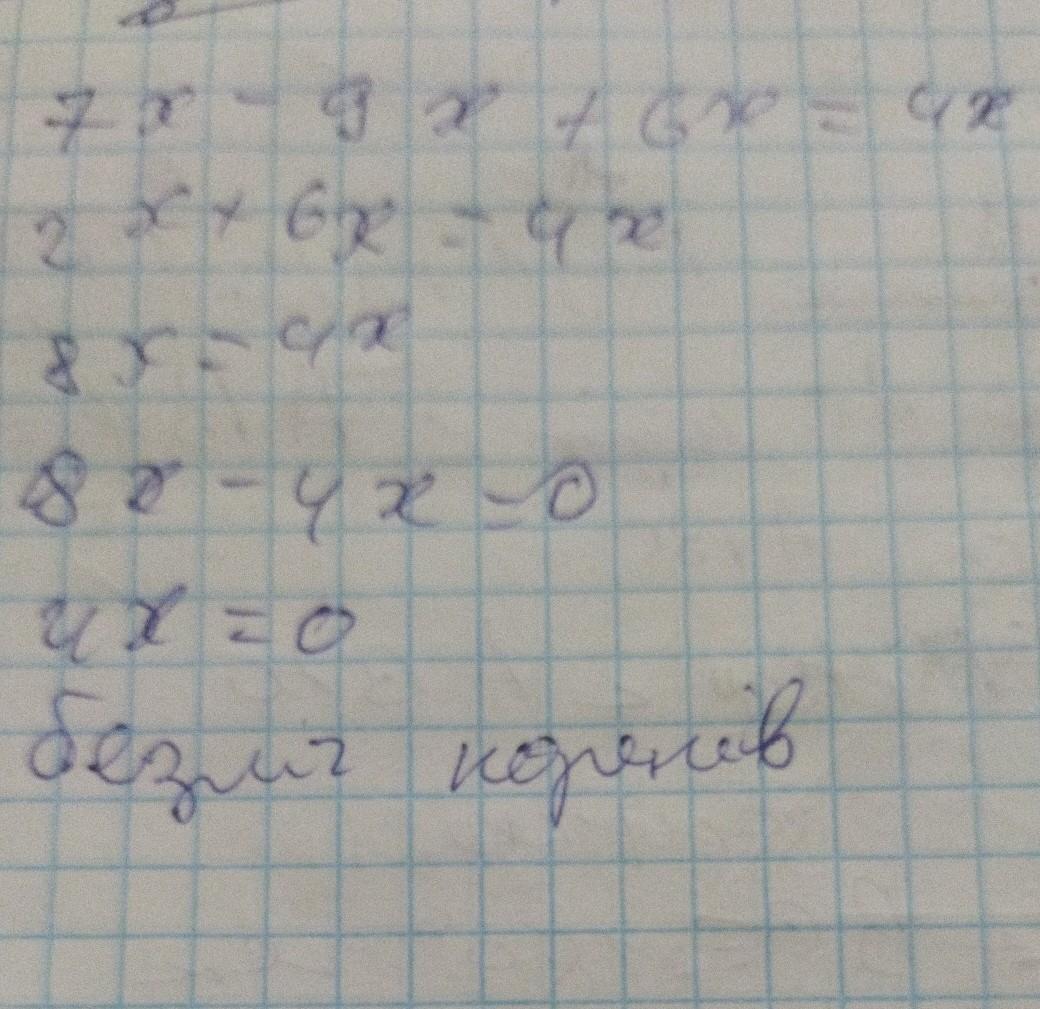 7x - 9x + 6x = 4x
2x + 6x = 4x
8x = 4x
8x - 4x = 0
4x = 0
безліч коренів